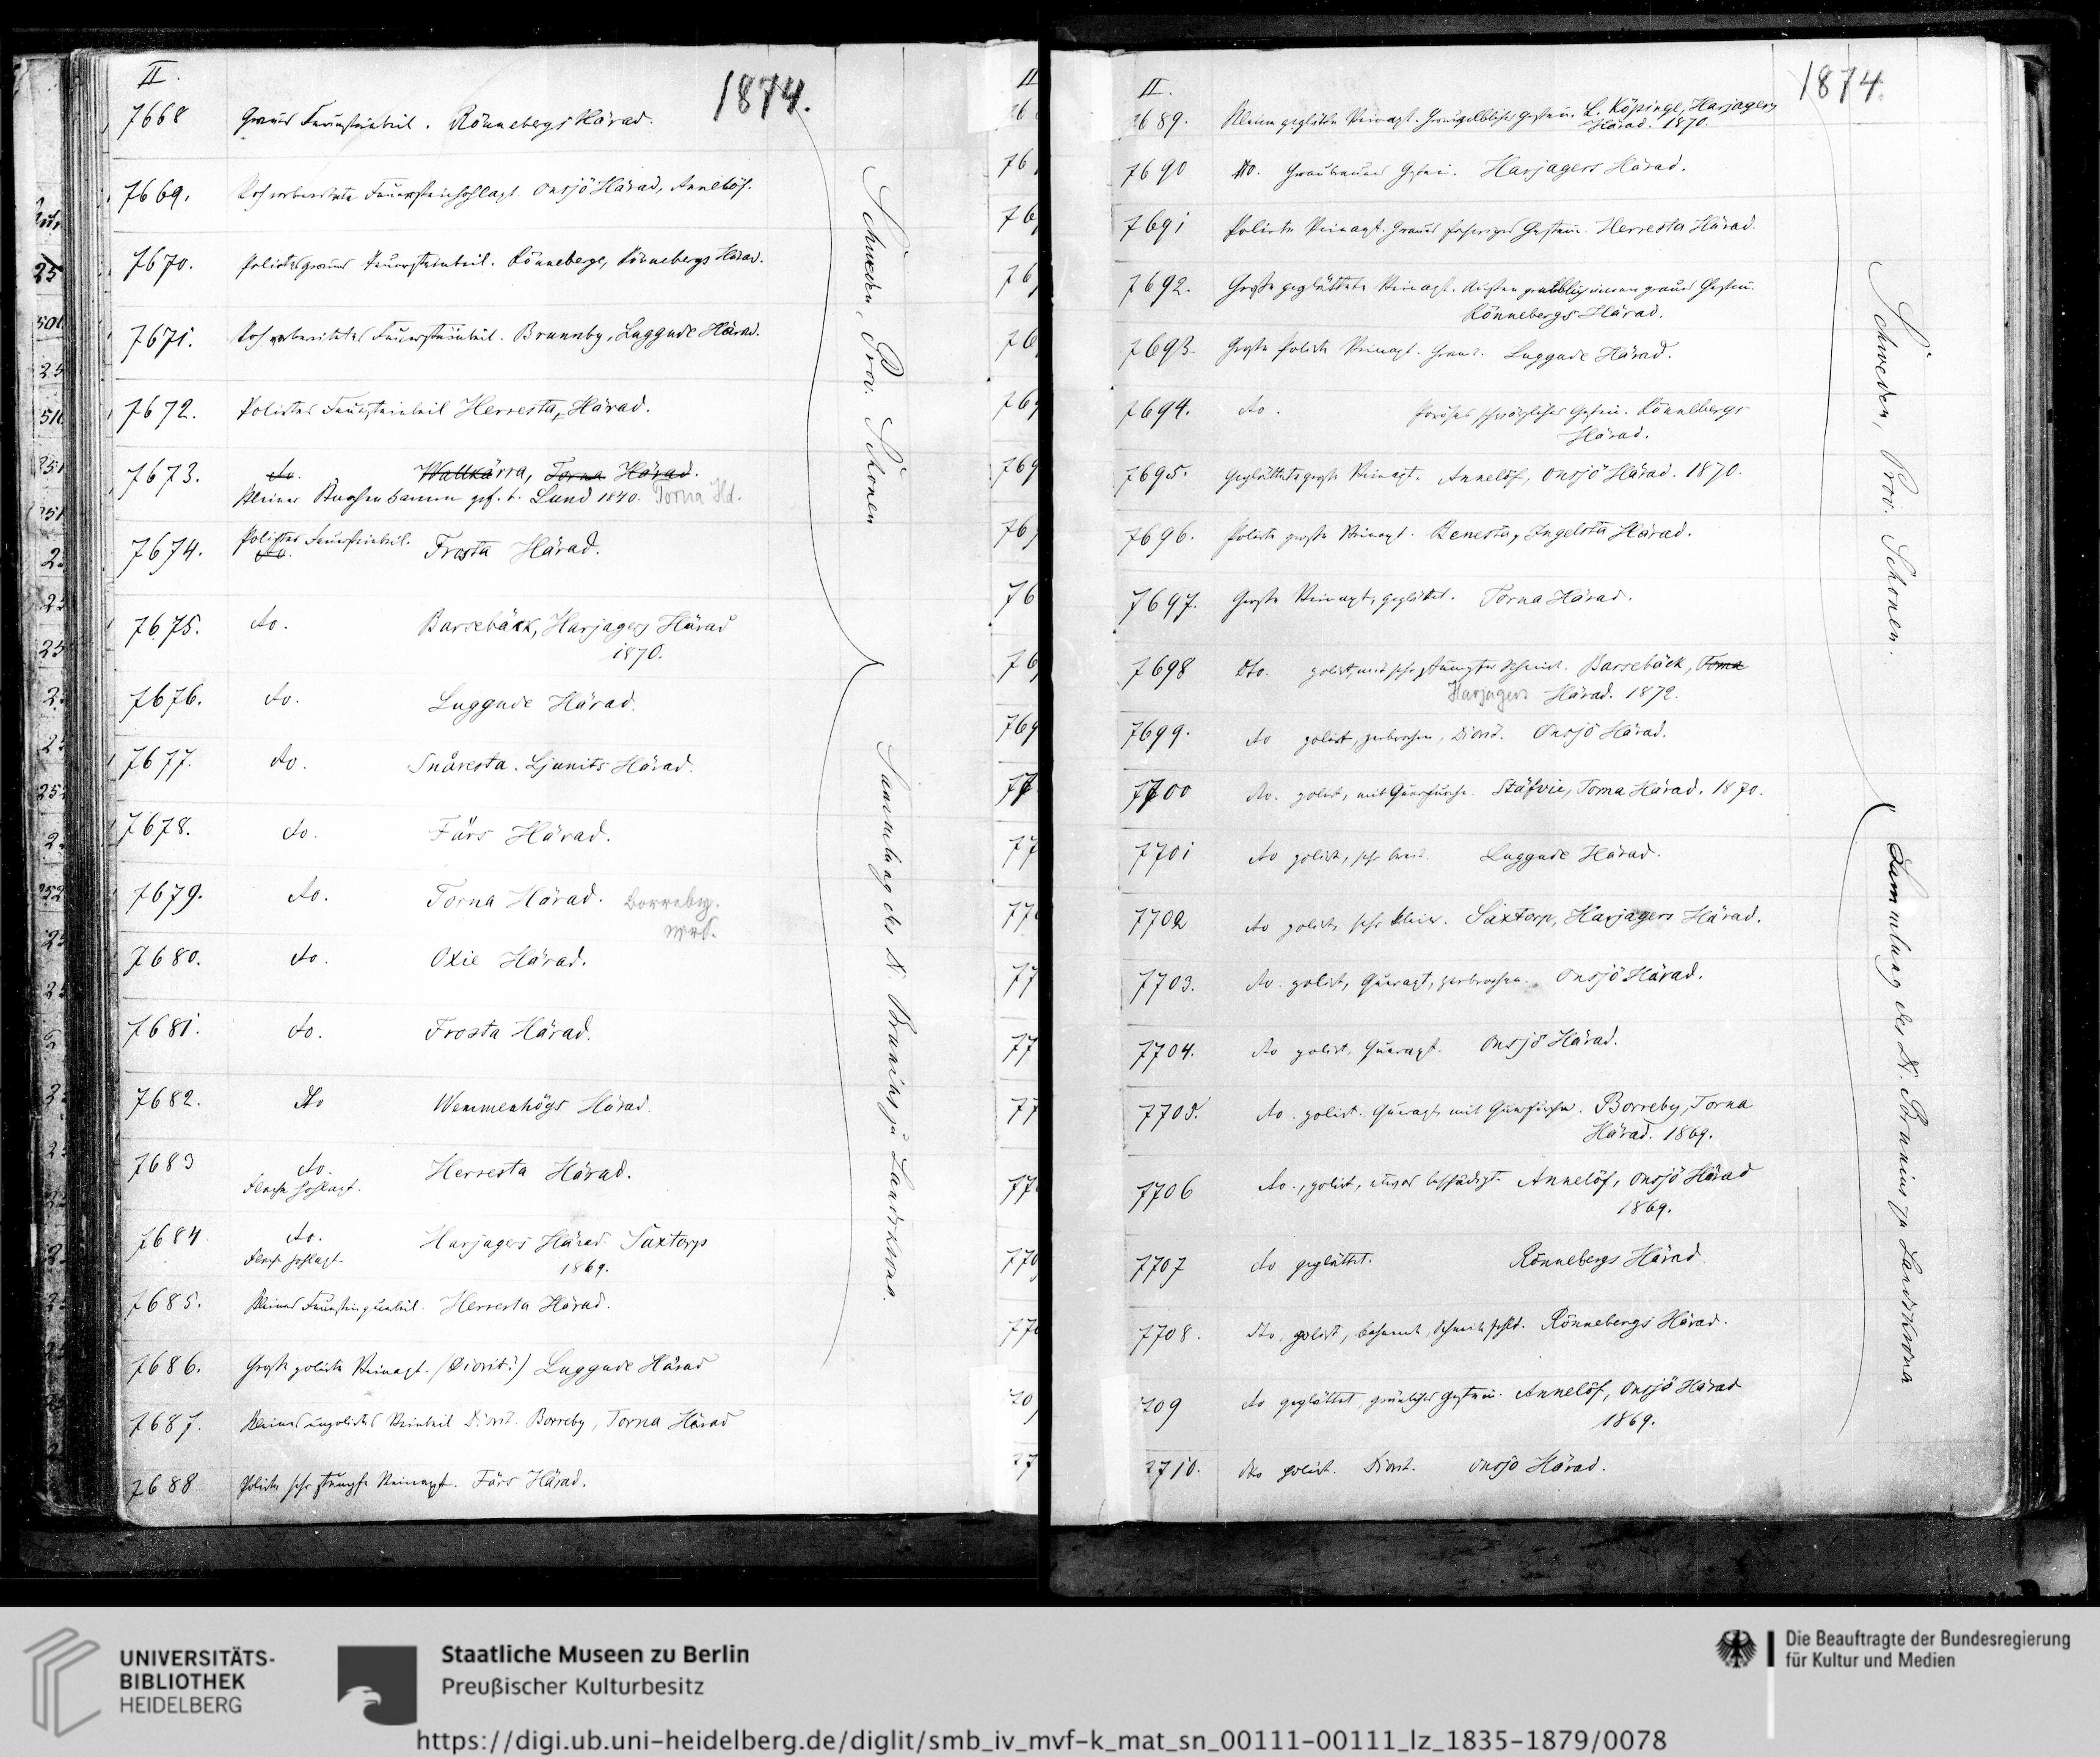 II.
1874.
7668 Graues Feuersteinbeil. Rönnebergs Härad.
7669. Roh vorbereitete Feuersteinhohlaxt. Onsjö Härad, Annelöf.
7670. Polirtes graues Feuersteinbeil. Rönneberge, Rönnebergs Härad.
7671. Roh vorbereitetes Feuersteinbeil. Brunnby, Luggude Härad.
7672. Polirtes Feuersteinbeil Herresta, Härad.
7673. do. Wallkärra, Torna Härad.
Kleiner gef. b. Lund 1840. Torna Hd.
7674. Polirtes Feuersteinbeil. Frosta Härad.
do.
7675. do. Barsebäck, Harjagers Härad
1870.
7676. do. Luggude Härad.
7677. do. Snåresta. Ljunits Härad.
7678. do. Färs Härad.
7679. do. Torna Härad. Borreby.
7680. do. Oxie Härad.
7681. do. Frosta Härad.
7682. do Wemmenhögs Härad.
7683 do. Herresta Härad.
Flache Hohlaxt.
7684 do. Harjagers Härad Saxtorp
Flache Hohlaxt. 1869.
7685. Kleines Herresta Härad.
7686. Große polirte Steinaxt. (Diorit?) Luggude Härad
7687. Kleines unpolirtes Steinbeil Diorit. Borreby, Torna Härad
7688 Polirte sehr stumpfe Steinaxt. Färs Härad.
Schweden, Prov. Schonen
Sammlung des Dr. Brunius zu Landskrona.
II.
1874.
7689. Kleine geglättete Steinaxt. Grüngelbliches Gestein. L. Köpinge, Harjagers
Härad. 1870.
7690 do. Graubraunes Gestein. Harjagers Härad.
7691 Polirte Steinaxt. Graues Gestein. Herresta Härad.
7692. Große geglättete Steinaxt. Außen gelblich innen graues Gestein.
Rönnebergs Härad.
7693. Große polirte Steinaxt. Grau. Luggude Härad.
7694. do. Poröses schwärzliches Gestein. Rönnebergs
Härad.
7695. Geglättete große Steinaxt. Annelöf, Onsjö Härad. 1870.
7696. Polirte große Steinaxt. Benesta, Ingelsta Härad.
7697. Große Steinaxt, geglättet. Torna Härad.
7698 do. polirt, mit sehr stumpfer Schneide. Barsebäck, Torna
Harjagers Härad. 1872.
7699. do polirt, zerbrochen, Diorit. Onsjö Härad.
7700 do. polirt, mit Querfurche. Stäfvie, Torna Härad. 1870.
7701 do polirt, sehr breit. Luggude Härad.
7702 do polirt, sehr klein. Saxtorp, Harjagers Härad.
7703. do. polirt, Queraxt, zerbrochen. Onsjö Härad.
7704. do polirt, Queraxt. Onsjö Härad.
7705. do. polirt. Queraxt mit Querfurche. Borreby, Torna
Härad. 1869.
7706 do., polirt, etwas beschädigt. Annelöf, Onsjö Härad
1869.
7707 do geglättet. Rönnebergs Härad
7708. do, polirt, Schneide fehlt. Rönnebergs Härad.
709 do geglättet, grünliches Gestein. Annelöf, Onsjö Härad
1869.
7710. do polirt. Diorit. Onsjö Härad.
Schweden, Prov. Schonen.
Sammlung des Dr. Brunius zu Landskrona
UNIVERSITÄTS-
BIBLIOTHEK
HEIDELBERG
Staatliche Museen zu Berlin
Preußischer Kulturbesitz
Die Beauftragte der Bundesregierung
für Kultur und Medien
https://digi.ub.uni-heidelberg.de/diglit/smb_iv_mvf-k_mat_sn_00111-00111_lz_1835-1879/0078